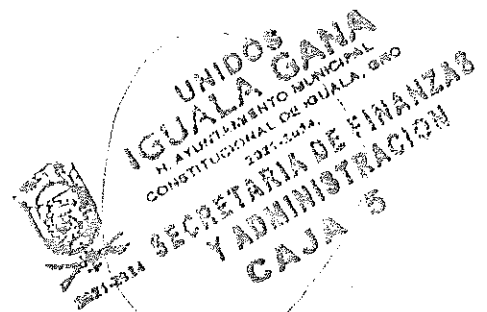 UNIDOS
IGUALA, GANA
H. AYUNTAMIENTO MUNICIPAL
CONSTITUCIONAL DE IGUALA, GRO
2021-2024.
SECRETARIA DE FINANZAS
Y ADMINISTRACION
CAJA 5
2021-2024